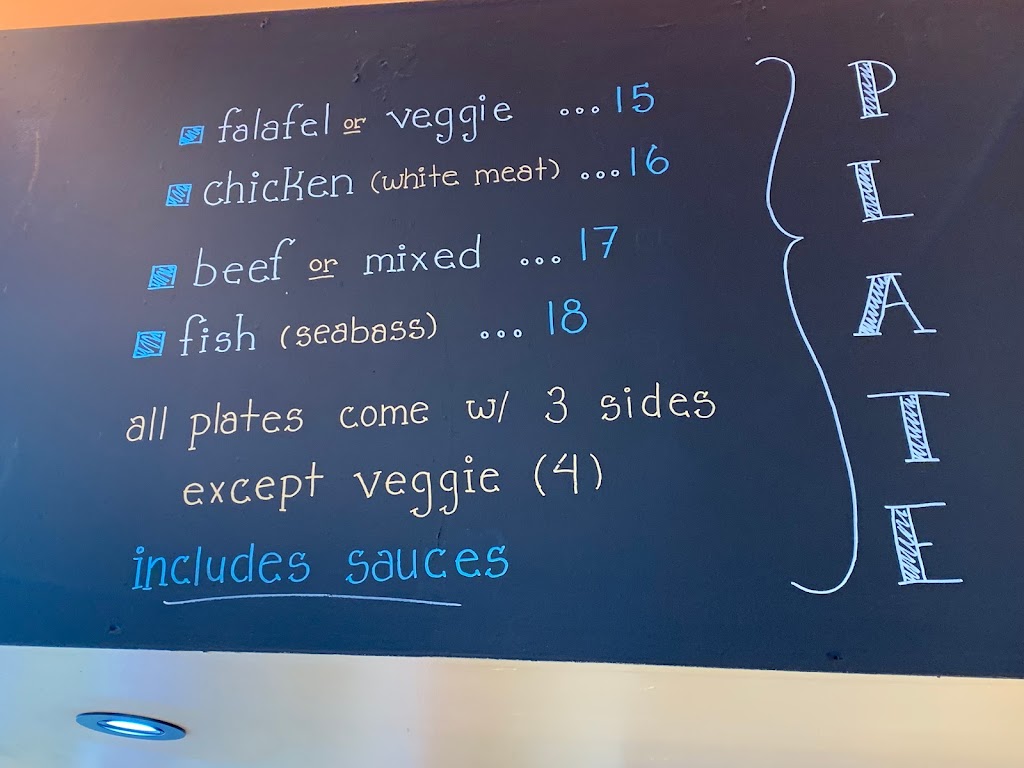 falafel or veggie ...15
chicken (white meat) ...16
beef or mixed ...17
fish (seabass) ...18
all plates come w/ 3 sides
except veggie (4)
includes sauces
PLATE